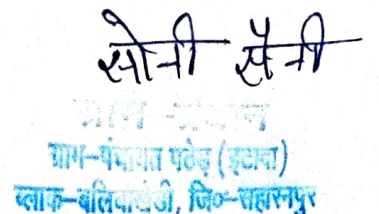 सोनी सैनी
ग्राम-पंचायत पठेड़ (इटावा)
ब्लाक-बलियाखेडी, जि०-सहारनपुर